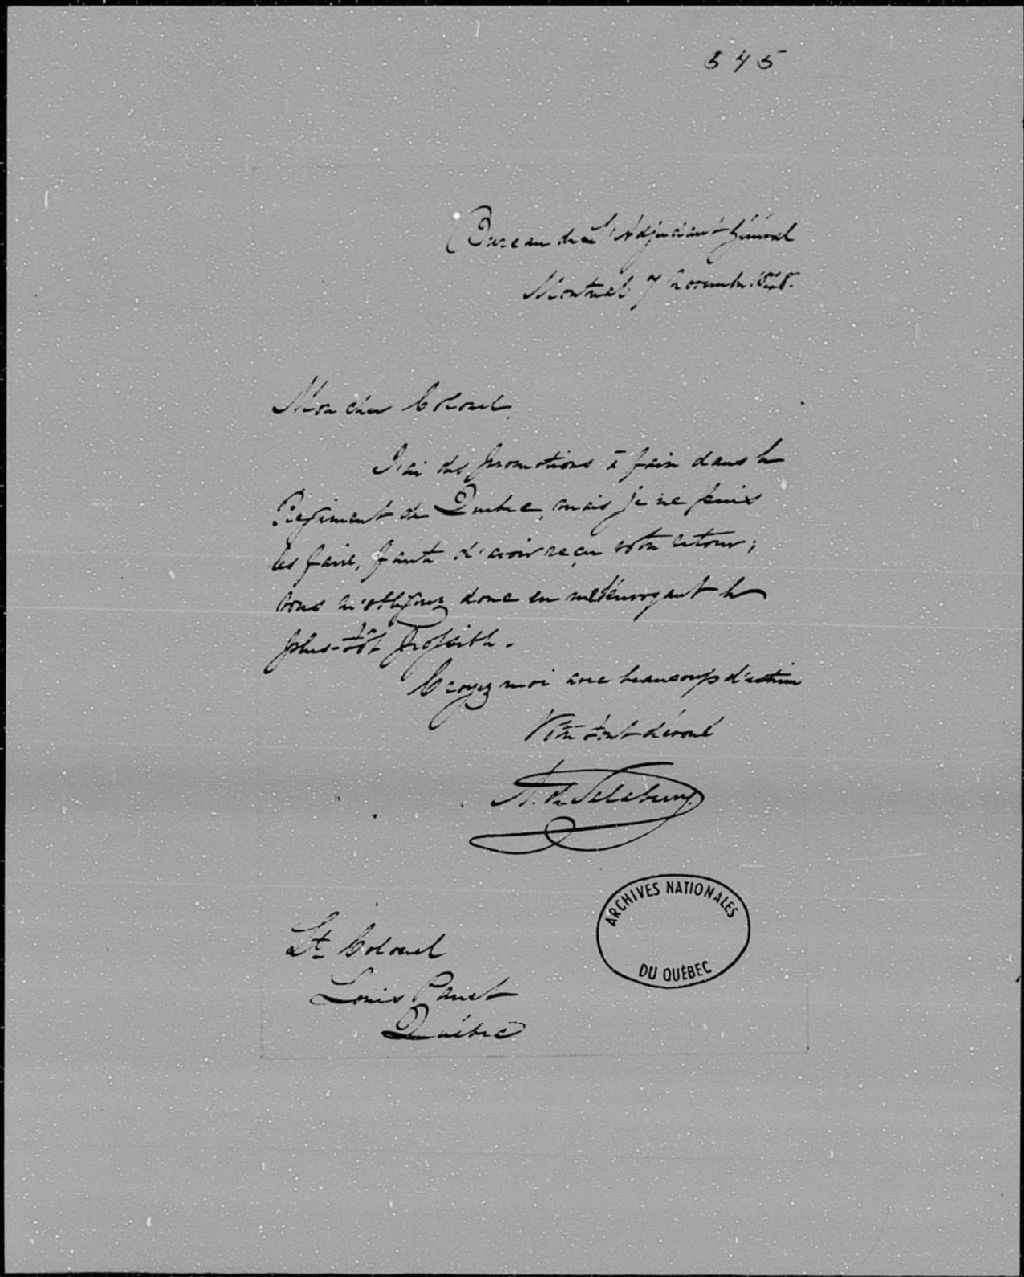 545
Bureau de L'Adjudant Général
Montreal 7 Novembre
Mon cher Colonel,
J'ai des promotions à faire dans le
Régiment de Québec, mais je ne puis
les faire, faute d'avoir reçu votre retour;
vous m'obligerez donc en me l'envoyant le
plus-tôt possible.
Croyez moi avec beaucoup d'estime
Votre tout dévoué
de Salaberry
ARCHIVES NATIONALES
DU QUÉBEC
Lt Colonel
Louis Panet
Québec